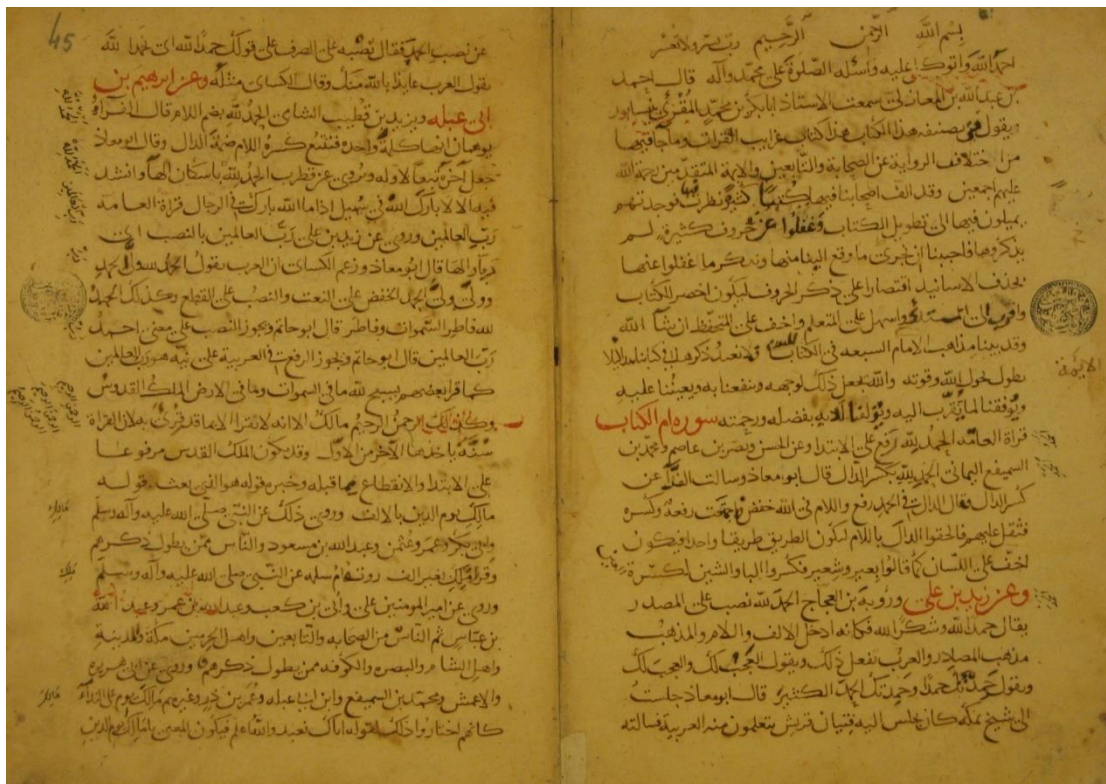 بسم الله الرحمن الرحيم رب يسر ولا تعسر
احمد الله واتوكل عليه واسئله الصلوة على محمد وآله قال احمد
بن عبد الله بن المعاذلى سمعت الاستاذ ابابكر بن محمد المقرئ بنيسابور
ويقول فى صنفه هذا الكتاب هذا كتاب غرايب القرات وما جآ فيها
من اختلاف الرواية عن الصحابة والتابعين والايمة المتقدمين رحمة الله
عليهم اجمعين وقد الف اصحابنا فيها كتبا كثيرة نظرت فيها فوجدتهم
يميلون فيها الى تطويل الكتاب وغفلوا عن حروف كثيرة لم
يذكروها فاحببنا ان نحرر ما وقع الينا منها ونذكر ما غفلوا عنها
بحذف الاسانيد اقتصارا على ذكر الحروف ليكون اخصر للكتاب
واقرب الى المستدئ واسهل على المتعلم واخف على المتحفظ ان شآ الله
وقد بينا مذاهب الامام السبعه فى الكتاب فلا نعيد ذكرها فى كتابنا هذا لئلا
يطول بحول الله وقوته والله يجعل ذلك لوجهه وينفعنا به ويعيننا عليه
ويوفقنا لما يقرب اليه ويزلفنا لديه بفضله ورحمته سورة ام الكتاب
قراة العامة الحمد لله رفع على الابتدا وعن الحسن ونصر بن عاصم ومحمد بن
السميفع اليمانى الحمد لله بكسر الدال قال ابو معاذ وسالت الفرآ عن
كسر الدال فقال الدال فى الحمد رفع واللام فى الله خفض واجتمعت رفعة وكسره
فثقل عليهم فالحقوا الدال باللام ليكون الطريق طريقا واحدا فيكون
اخف على اللسان كما قالوا بعير وشعير فكسروا البا والشين لكسرة
وعن زيد بن على وروبة بن العجاج الحمد لله نصب على المصدر
يقال حمدا لله وشكرا لله فكانه ادخل الالف واللام والمذهب
مذهب المصادر والعرب تفعل ذلك ويقول العجب لك والعجب لك
ويقول حمدتك حمدا وحمدتك الحمد الكثير قال ابو معاذ جلست
الى شيخ بمكة كان يجلس اليه فتيان قريش يتعلمون منه العربية فسالته
45
عن نصب الحمد فقال نصبه على الصرف على قولك حمدا لله اى نحمدا لله
يقول العرب عايذا بالله منك وقال الكساى مثله وعن ابرهيم بن
ابى عبله ويزيد بن قطيب الشاى الحمد لله بضم اللام قال الفرآ
يوهمان انها كلمة واحده فتتبع كسره اللام ضمة الدال وقال ابو معاذ
جعل آخره تبعا لاوله ويروى عن قطرب الحمد لله باسكان الها وانشد
فيه الا لا بارك الله فى سهيل اذا ما الله بارك فى الرجال قراة العامة
رب العالمين وروى عن زيد بن على رب العالمين بالنصب اى
يا رب الها قال ابو معاذ وزعم الكساى ان العرب يقول الحمد
ووولى الحمد الخفض على النعت والنصب على القطع وكذلك الحمد
لله فاطر السموات وفاطر قال ابو حاتم ويجوز النصب على معنى احمد
رب العالمين قال ابو حاتم ويجوز الرفع فى العربية على نية هو رب العالمين
كما قرا بعضهم يسبح لله ما فى السموات وما فى الارض الملك القدوس
وكذلك الرحمن الرحيم مالك الا انه لا تقرا الا بما قد قرئ به لان القراة
سنة ياخذها الآخر من الاول وقد يكون الملك القدس مرفوعا
على الابتدا والانقطاع مما قبله وخبره قوله هو الذى بعث قوله
مالك يوم الدين بالالف وروى ذلك عن النبى صلى الله عليه وآله وسلم
وابى بكر وعمر وعثمن وعبد الله بن مسعود والناس ممن يطول ذكرهم
وقرا ملك بغير الف روته ام سلمه عن النبى صلى الله عليه وآله وسلم
وروى عن امير المومنين على وابى بن كعب وعبد الله بن عمر وعبد الله
بن عباس ثم الناس من الصحابه والتابعين واهل الحرمين مكة والمدينة
واهل الشام والبصره والكوفه ممن يطول ذكرهم وروى عن ابى هريره
والاعمش ومحمد بن السميفع وابن ابى عبله وعمر بن ذر وغيرهم مالك يوم على الندآء
كانهم اختاروا ذلك لقوله اياك نعبد والله اعلم فيكون المعنى يا مالك يوم الدين